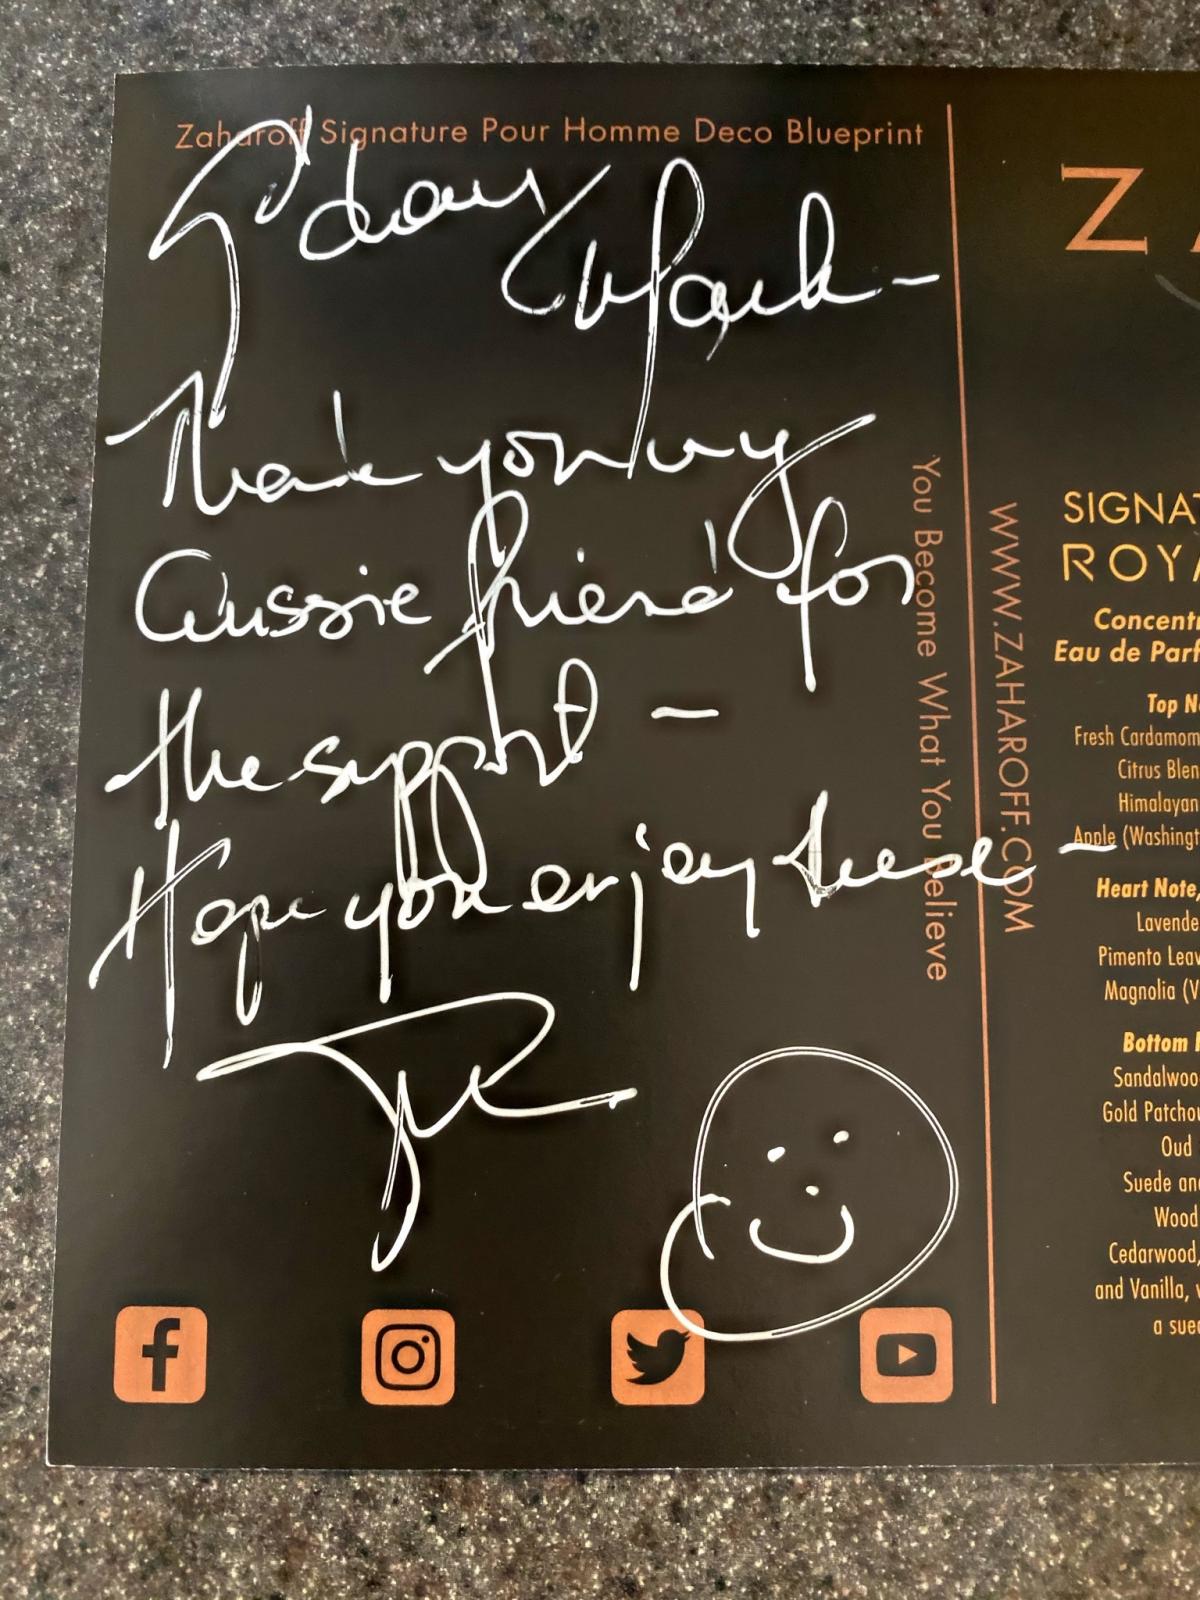 Zaharoff Signature Pour Homme Deco Blueprint
G'day
Mark-
Thank you my
Aussie friend for
the support -
Hope you enjoy these -
You Become What You Believe
WWW.ZAHAROFF.COM
Z
SIGNAT
ROYA
Concentr
Eau de Parf
Top No
Fresh Cardamom
Citrus Blen
Himalayan
Apple (Washingt
Heart Note,
Lavende
Pimento Leav
Magnolia (V
Bottom
Sandalwoo
Gold Patchou
Oud
Suede an
Wood
Cedarwood,
and Vanilla,
a sue